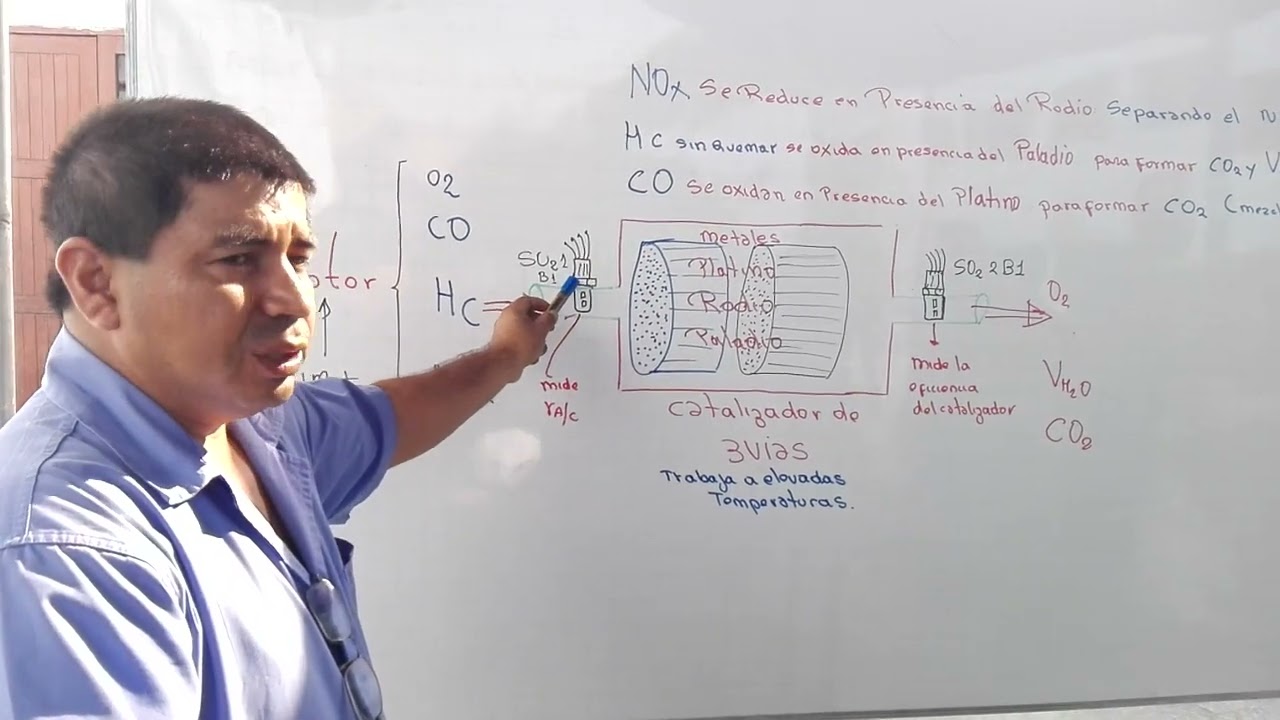 NOx Se Reduce en Presencia del Rodio Separando el
HC sin quemar se oxida en presencia del Paladio para formar CO2 y V
CO Se oxidan en Presencia del Platino para formar CO2 (mezcl
O2
CO
HC
otor
SO2 1
B1
mide
rA/C
metales
Platino
Rodio
Paladio
catalizador de
3 vías
Trabaja a elevadas
Temperaturas.
SO2 2 B1
mide la
eficiencia
del catalizador
O2
VH2O
CO2